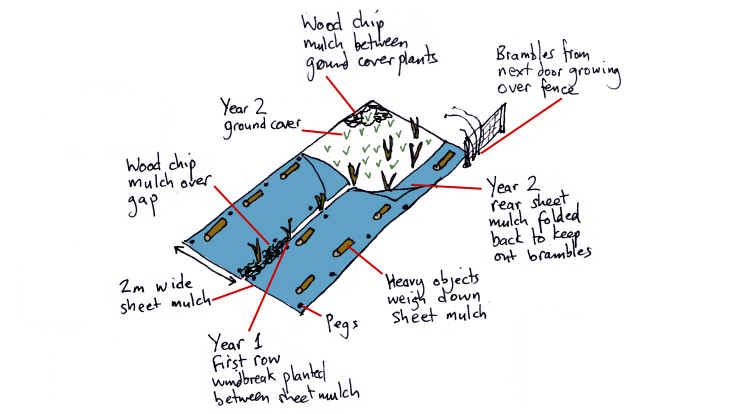 Wood chip
mulch between
ground cover plants
Brambles from
next door growing
over fence
Year 2
ground cover
Wood chip
mulch over
gap
Year 2
rear sheet
mulch folded
back to keep
out brambles
2m wide
sheet mulch
Heavy objects
weigh down
sheet mulch
Pegs
Year 1
First row
windbreak planted
between sheet mulch